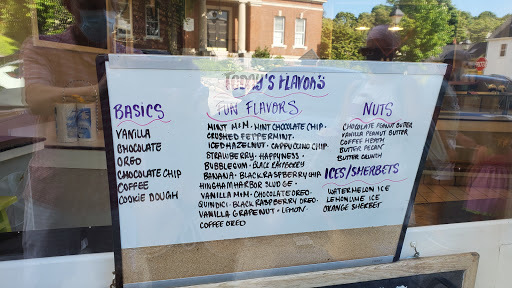 TODAY'S FLAVORS
BASICS
VANILLA
CHOCOLATE
OREO
CHOCOLATE CHIP
COFFEE
COOKIE DOUGH
FUN FLAVORS
MINT M+M · MINT CHOCOLATE CHIP ·
CRUSHED PEPPERMINT ·
ICED HAZELNUT · CAPPUCCINO CHIP ·
STRAWBERRY · HAPPINESS ·
BUBBLEGUM · BLACK RASPBERRY
BANANA · BLACK RASPBERRY CHIP
HINGHAM HARBOR SLUDGE ·
VANILLA M+M · CHOCOLATE OREO ·
QUINDICI · BLACK RASPBERRY OREO ·
VANILLA GRAPENUT · LEMON
COFFEE OREO
NUTS
CHOCOLATE PEANUT BUTTER
VANILLA PEANUT BUTTER
COFFEE HEATH
BUTTER PECAN
BUTTER CRUNCH
ICES/SHERBETS
WATERMELON ICE
LEMON LIME ICE
ORANGE SHERBET